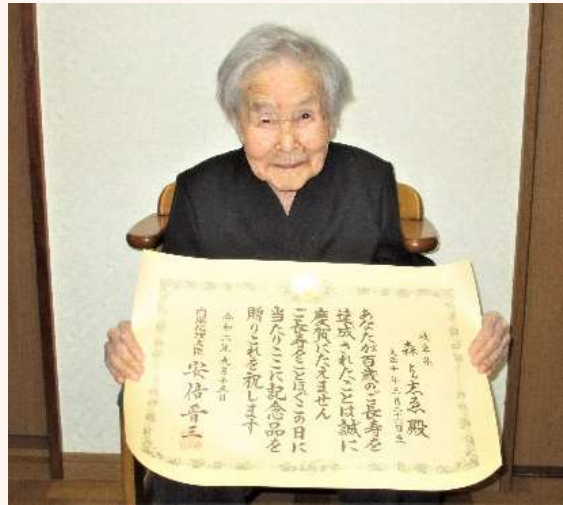 岐阜県
森 と志ゑ 殿
大正十年三月二十六日生
あなたが百歳のご長寿を
達成されたことは誠に
慶賀にたえません
ご長寿をことほぐこの日に
当たりここに記念品を
贈りこれを祝します
令和二年九月十五日
内閣総理大臣 安倍晋三